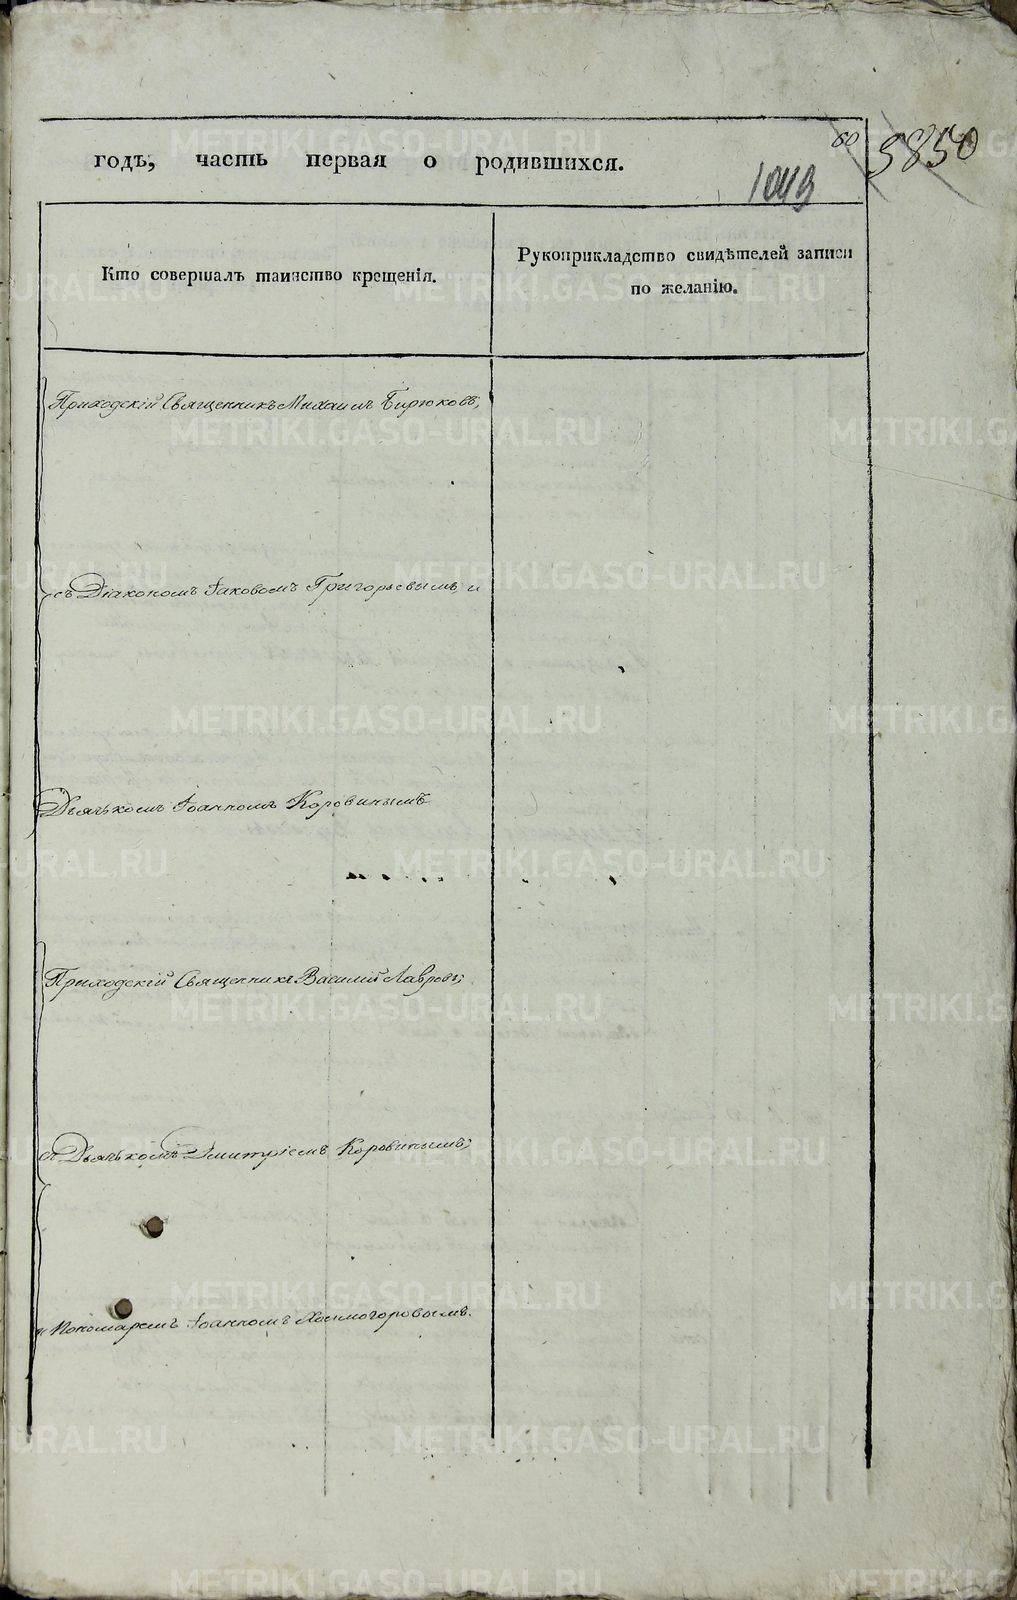 годъ, часть первая о родившихся.
60
3850
1049
Кто совершалъ таинство крещенія.
Рукоприкладство свидѣтелей записи
по желанію.
Приходскій Священникъ Михаилъ Бирюковъ,
съ Діакономъ Іаковомъ Григорьевымъ и
Дьячькомъ Іоанномъ Коровинымъ
Приходскій Священникъ Василій Лавровъ,
съ Дьячькомъ Димитріемъ Коровинымъ,
и Пономаремъ Іоанномъ Холмогоровымъ.
METRIKI.GASO-URAL.RU